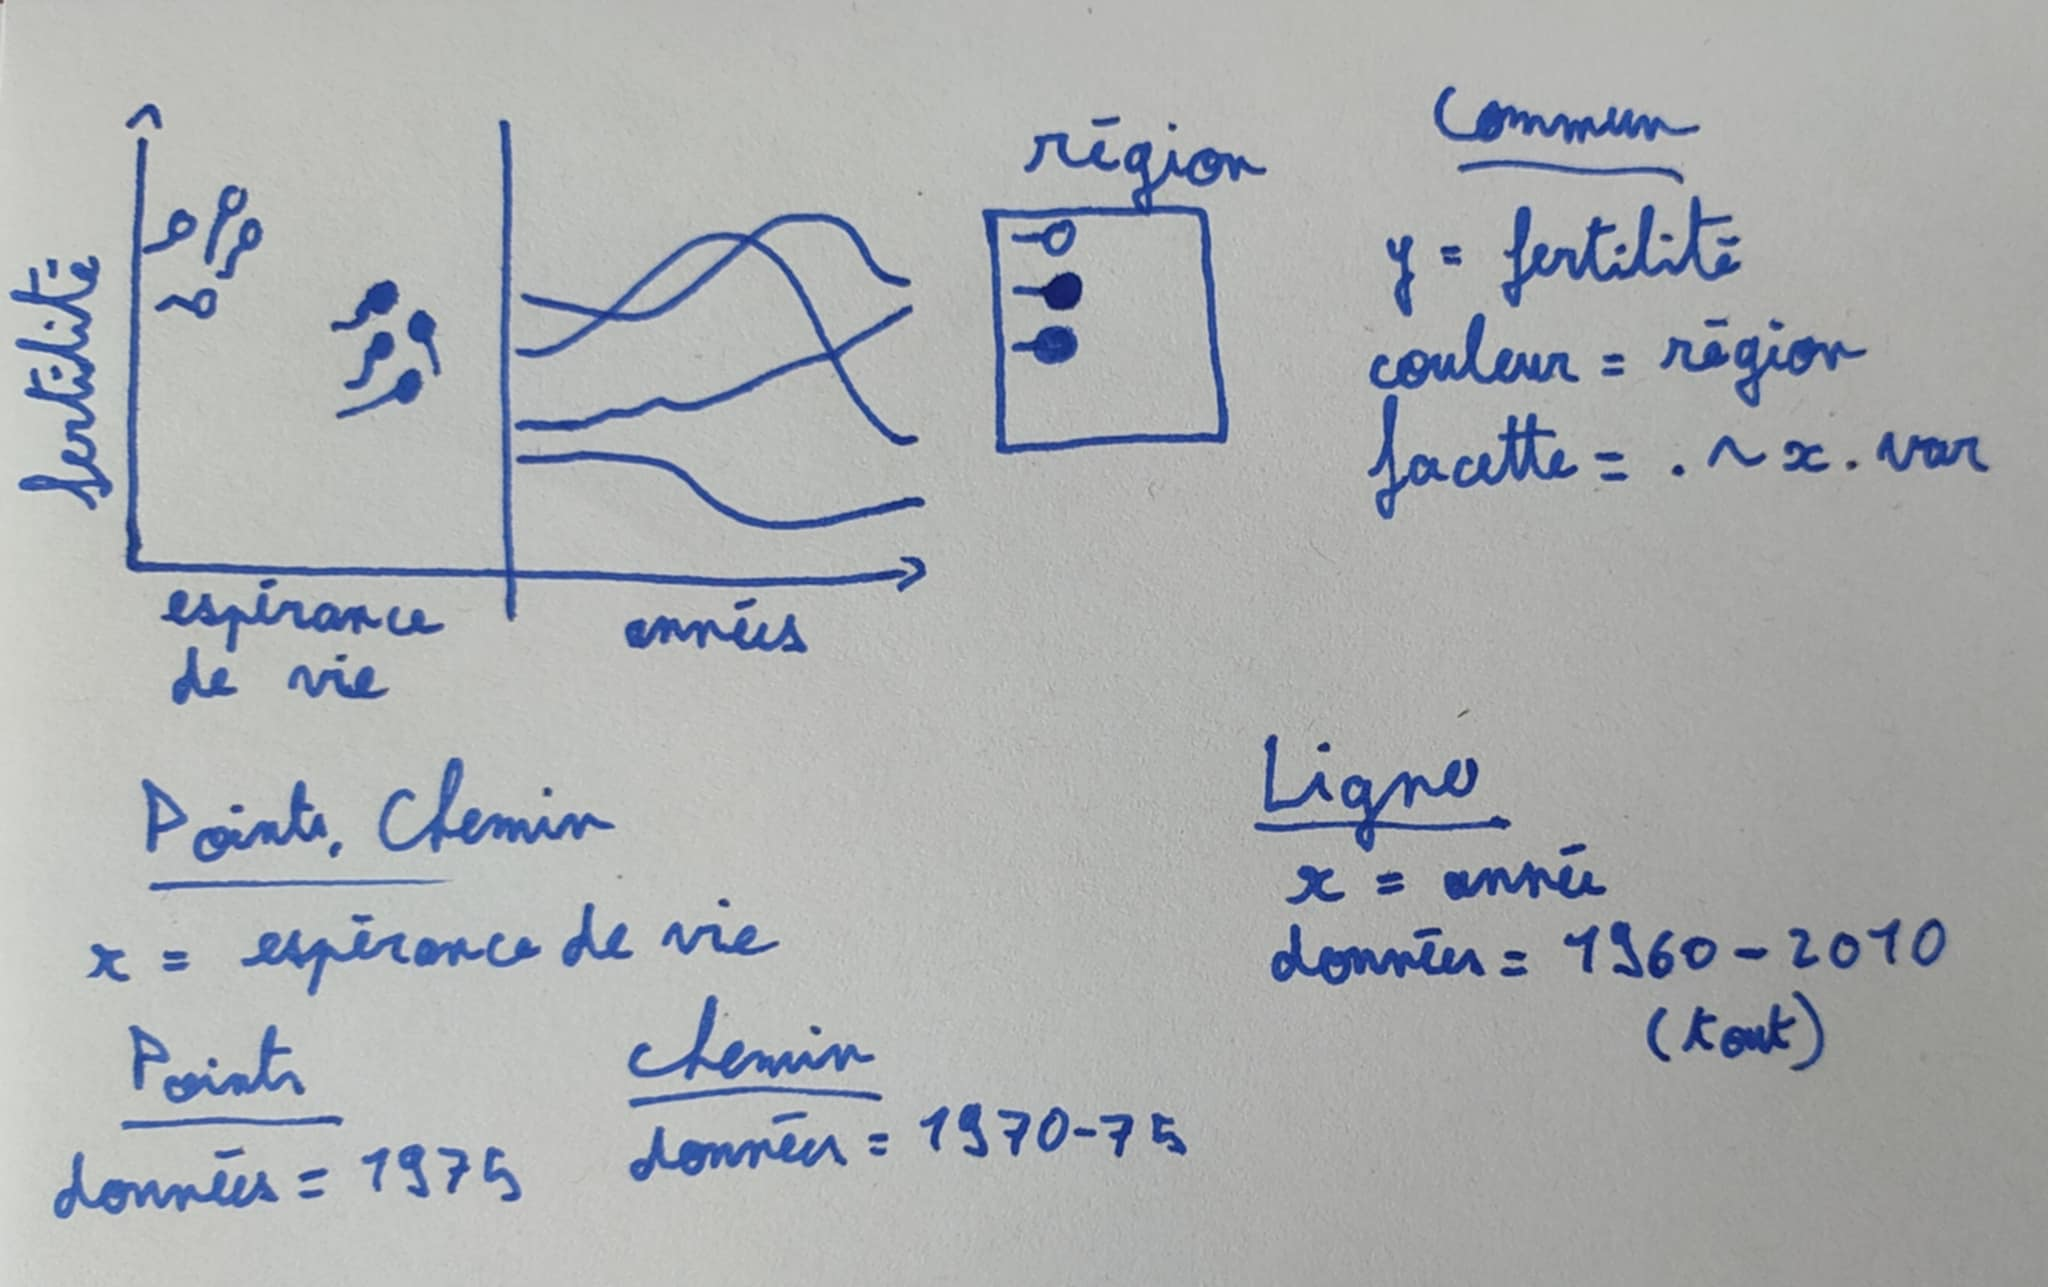 fertilité
espérance
de vie
années
région
Commun
y = fertilité
couleur = région
facette = . ~ x . var
Points, Chemin
x = espérance de vie
Points
données = 1975
chemin
données = 1970-75
Ligne
x = année
données = 1960-2010
(tout)